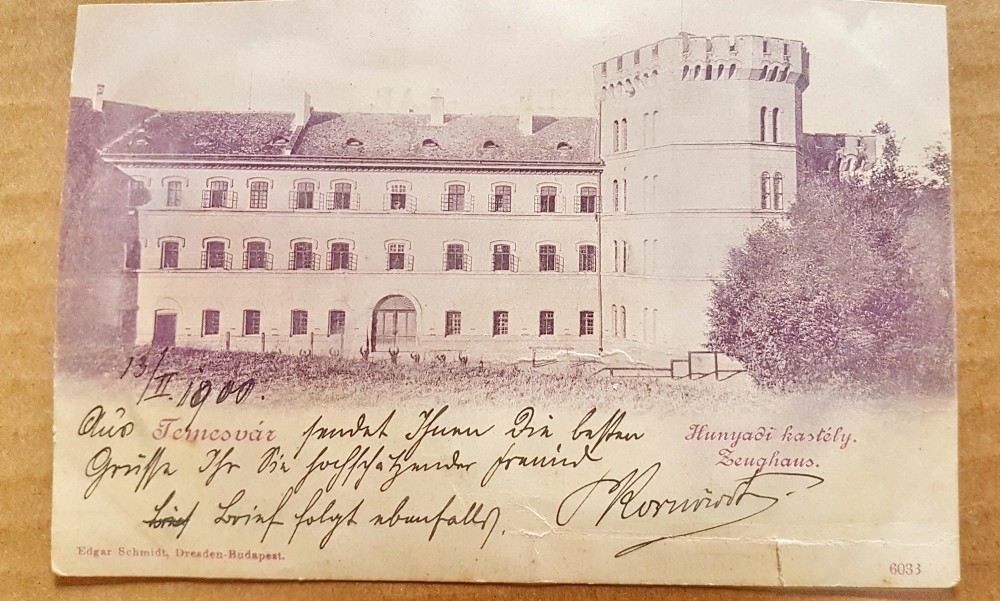 13/II 1900.
Aus Temesvár sendet Ihnen Die besten
Hunyadi kastély.
Zeughaus.
Grüsse Ihr Sie hochschätzender Freund
Brief folgt ebenfalls.
Edgar Schmidt, Dresden-Budapest.
6033